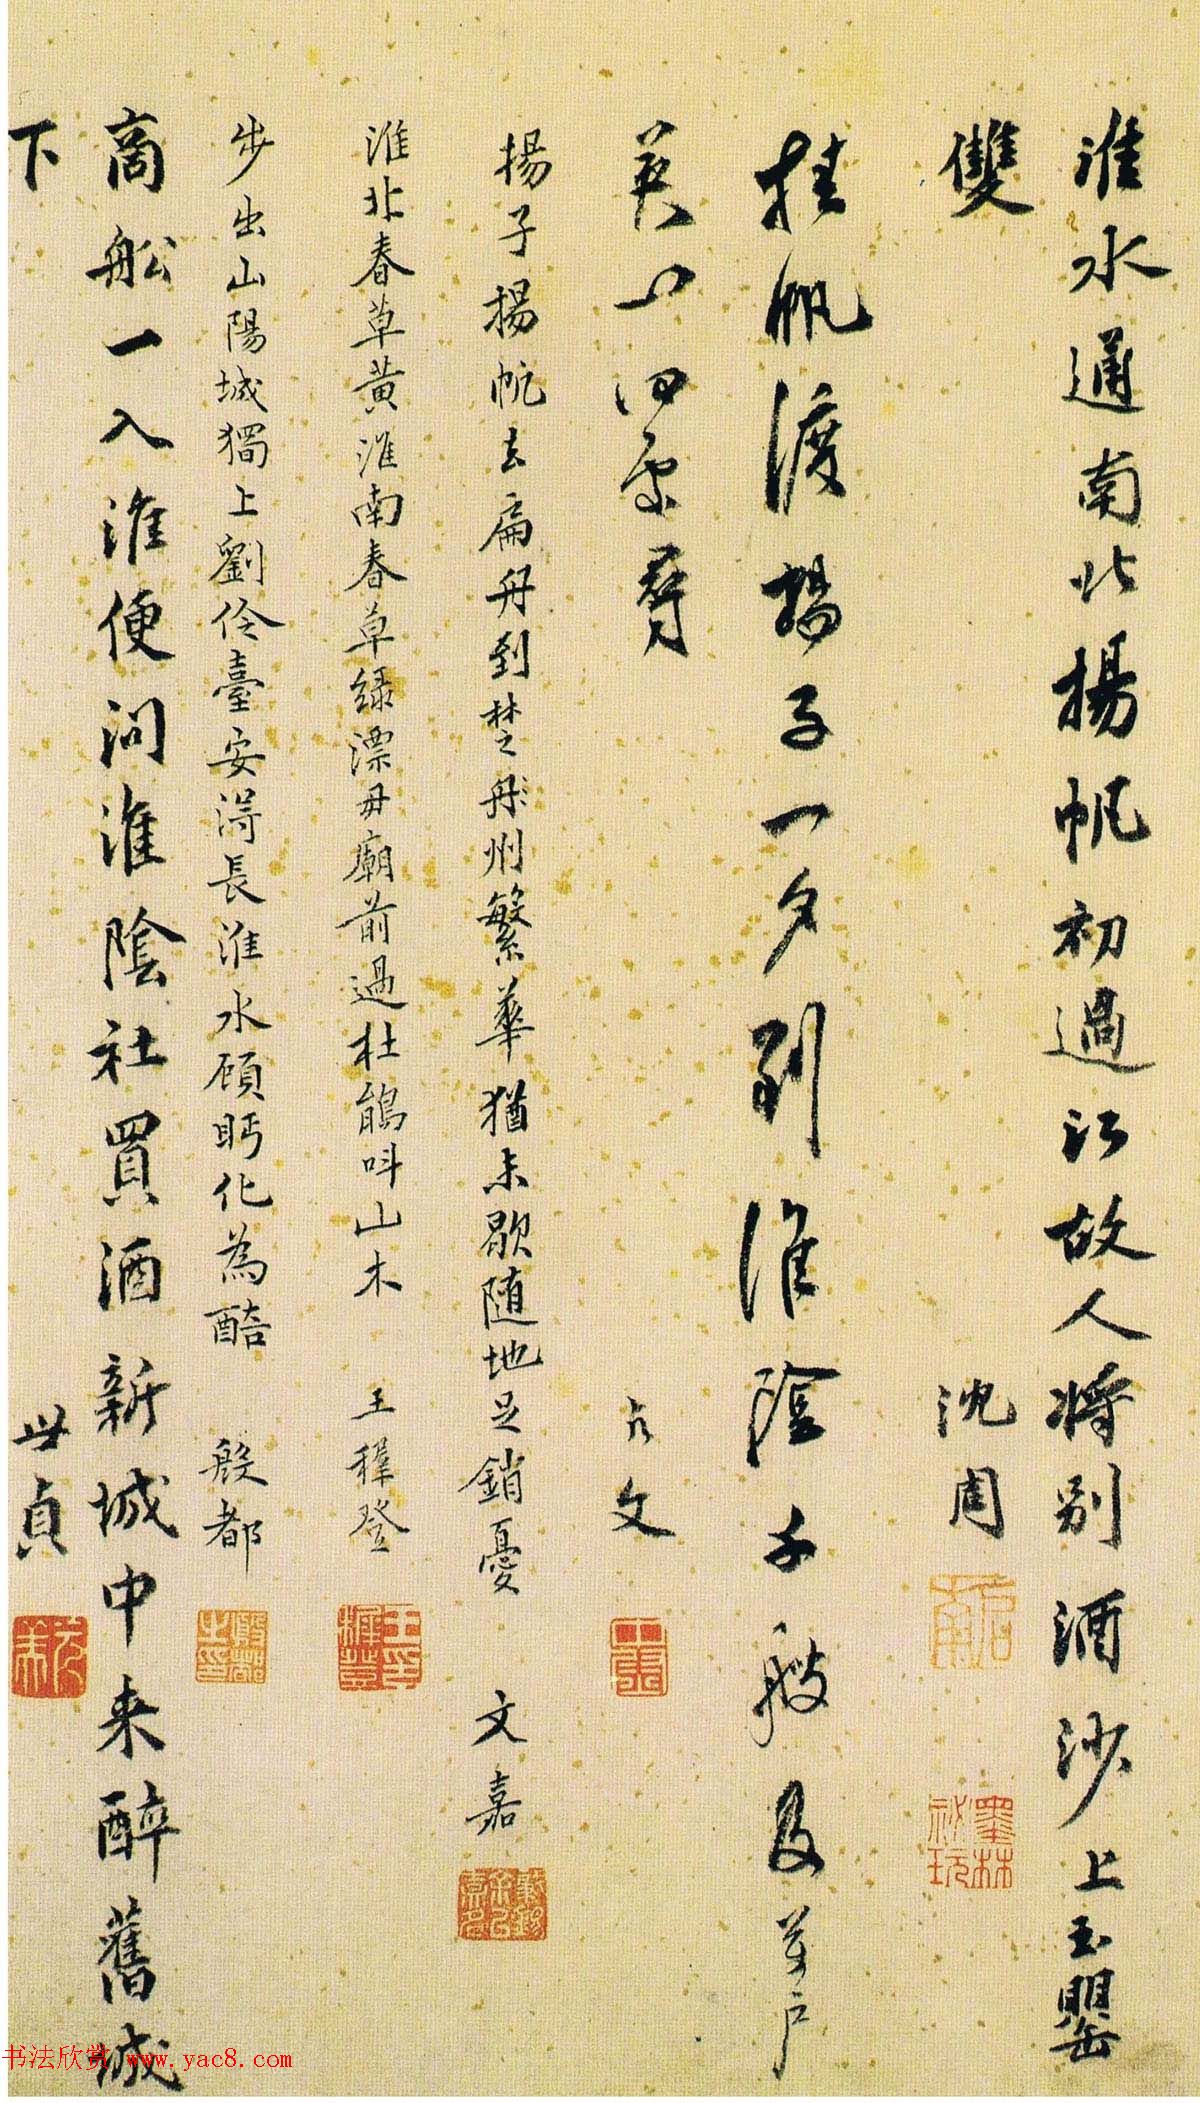 淮水通南北揚帆初過江故人将别酒沙上玉罌
雙
沈周
啓南
墨林祕玩
挂帆渡揚子一夕到淮陰千艘及萬户
英
文
揚子揚帆去扁舟到楚州繁華猶未歇随地足銷憂
文嘉
淮北春草黄淮南春草緑漂毋廟前過杜鵑叫山木
王穉登
王穉登
步出山陽城獨上劉伶臺安得長淮水顧眄化為醅
殷都
殷都之印
商船一入淮便问淮陰社買酒新城中来醉舊城
下
世貞
元美
书法欣赏 www.yac8.com